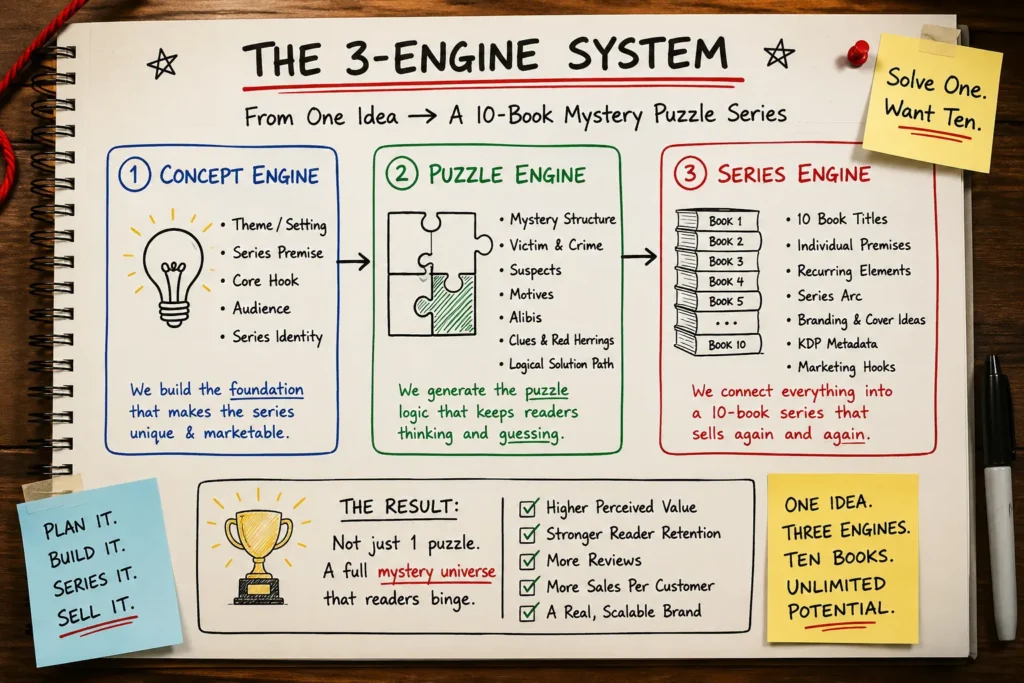 THE 3-ENGINE SYSTEM
From One Idea → A 10-Book Mystery Puzzle Series
Solve One.
Want Ten.
1 CONCEPT ENGINE
• Theme / Setting
• Series Premise
• Core Hook
• Audience
• Series Identity
We build the foundation
that makes the series
unique & marketable.
2 PUZZLE ENGINE
• Mystery Structure
• Victim & Crime
• Suspects
• Motives
• Alibis
• Clues & Red Herrings
• Logical Solution Path
We generate the puzzle
logic that keeps readers
thinking and guessing.
3 SERIES ENGINE
BOOK 1
BOOK 2
BOOK 3
BOOK 4
BOOK 5
...
BOOK 10
• 10 Book Titles
• Individual Premises
• Recurring Elements
• Series Arc
• Branding & Cover Ideas
• KDP Metadata
• Marketing Hooks
We connect everything into
a 10-book series that
sells again and again.
PLAN IT.
BUILD IT.
SERIES IT.
SELL IT.
THE RESULT:
Not just 1 puzzle.
A full mystery universe
that readers binge.
Higher Perceived Value
Stronger Reader Retention
More Reviews
More Sales Per Customer
A Real, Scalable Brand
ONE IDEA.
THREE ENGINES.
TEN BOOKS.
UNLIMITED
POTENTIAL.